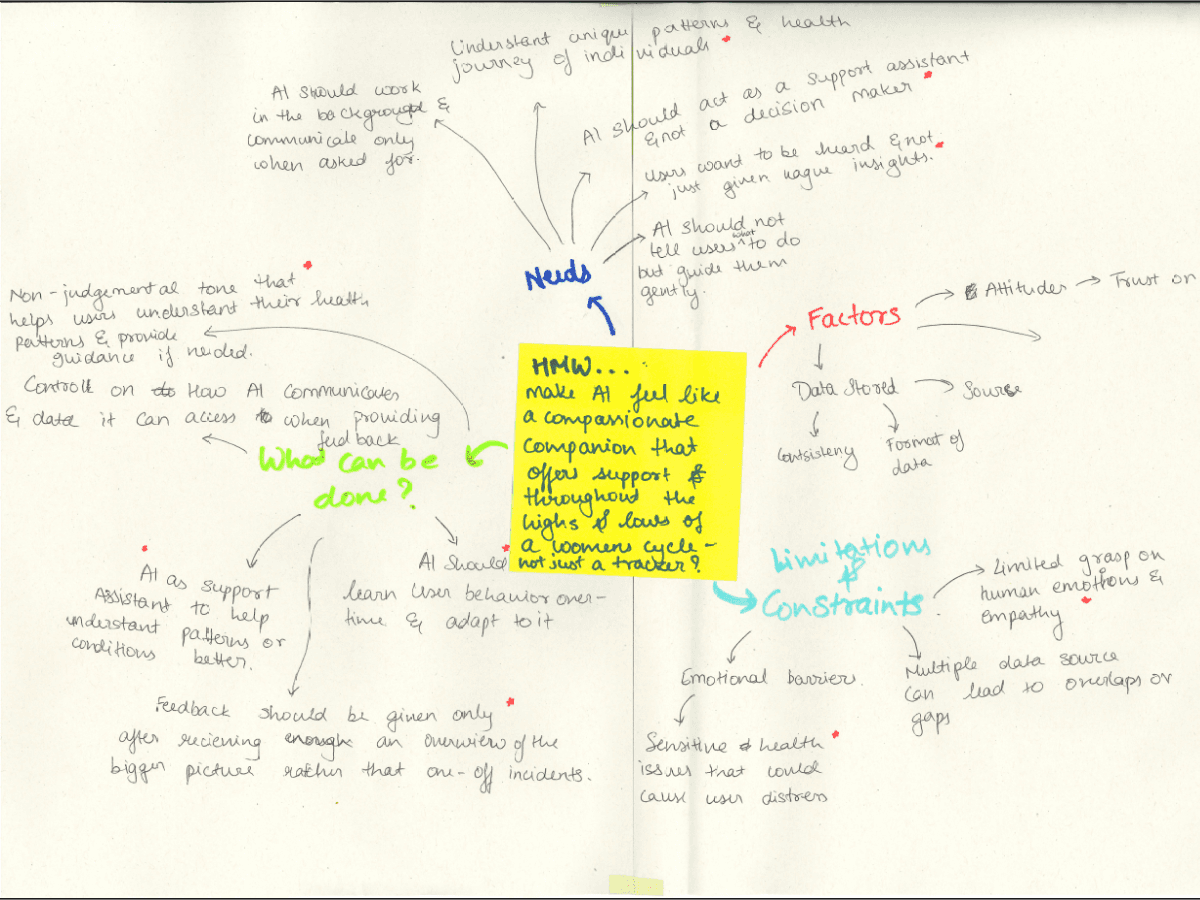 Understant unique patterns & health
journey of individuals
AI should work
in the background &
communicate only
when asked for.
AI should act as a support assistant
& not a decision maker
users want to be heard & not
just given vague insights.
AI should not
tell users what to do
but guide them
gently.
Needs
Non-judgemental tone that
helps users understant their health
patterns & provide
guidance if needed.
Controll on to How AI communicates
& data it can access to when providing
feedback
What can be
done?
HMW...
make AI feel like
a compassionate
companion that
offers support &
throughout the
highs & lows of
a womens cycle -
not just a tracker?
Factors
Attitudes
Trust on
Data Stored
Source
Contsisteny
Format of
data
AI as support
Assistant to help
understant patterns or
conditions better.
AI should
learn user behavior over-
time & adapt to it
Feedback should be given only
after recieving enough an overview of the
bigger picture rather that one-off incidents.
Limitations
&
Constraints
Limited grasp on
human emotions &
empathy
Emotional barrier.
Multiple data source
can lead to overlaps or
gaps
Sensitive & health
issues that could
cause user distress